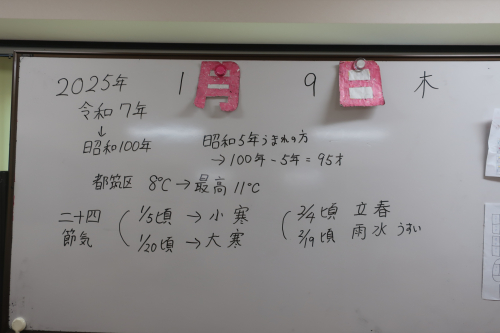 2025年 1月 9日 木
令和7年
↓
昭和100年 昭和5年うまれの方
→100年-5年=95才
都筑区 8℃→最高11℃
二十四 1/5頃→小寒 2/4頃 立春
節気 1/20頃→大寒 2/19頃 雨水 うすい